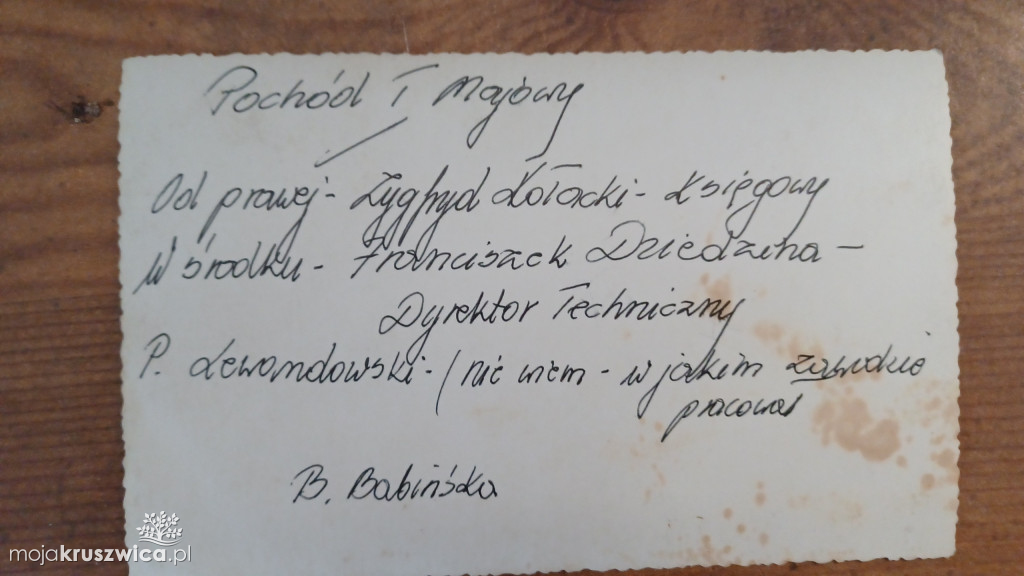 Pochód 1 Majowy
Od prawej - Zygfryd Kołacki - Księgowy
W środku - Franciszek Dziedzina -
Dyrektor Techniczny
P. Lewandowski - / nie wiem - w jakim zawodzie
pracował
B. Babińska
mojakruszwica.pl